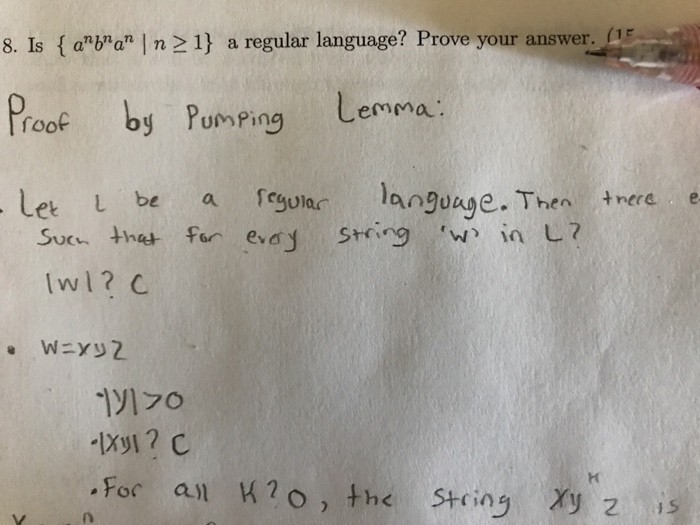 8. Is { aⁿbⁿaⁿ | n ≥ 1} a regular language? Prove your answer. (15
Proof by Pumping Lemma:
Let L be a regular language. Then there e
Such that for every string 'w' in L?
|w|? C
• W=xyz
•|y|>0
•|xy|? C
•For all K?0, the string xyᴷz is